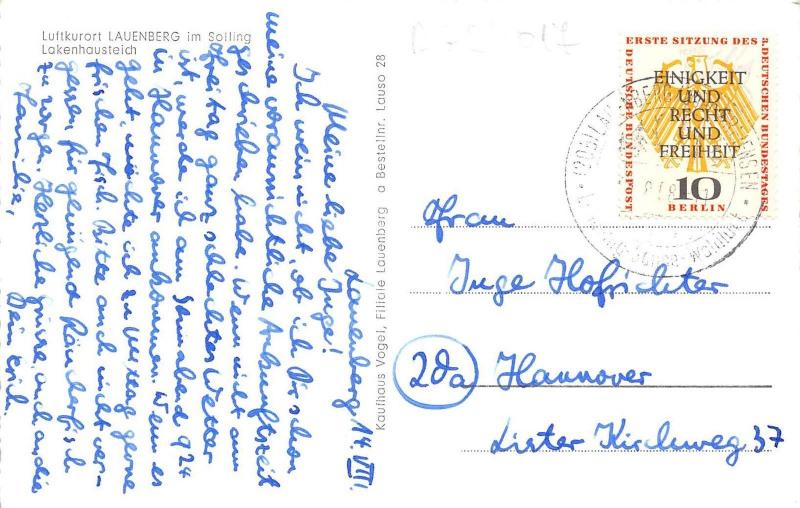 Luftkurort LAUENBERG im Solling
Lakenhausteich
Lauenberg 14. VIII.
Meine liebe Inge!
Ich weiss nicht, ob ich Dir schon
meine voraussichtliche Ankunftszeit
geschrieben habe. Wenn nicht am
Freitag ganz schlechtes Wetter
ist, werde ich am Sonnabend 9.24
in Hannover ankommen. Wenn es
geht, möchte ich zu Mittag gerne
frischen Fisch. Bitte auch nicht ver-
gessen für genügend Räucherfisch
zu sorgen. Herzliche Grüsse, auch an die
Familie,
Dein Erich.
Kaufhaus Vogel, Filiale Lauenberg a Bestellnr. Lauso 28
ERSTE SITZUNG DES 3. DEUTSCHEN BUNDESTAGES
DEUTSCHE BUNDESPOST
EINIGKEIT
UND
RECHT
UND
FREIHEIT
10
BERLIN
(20b) LAUENBERG
Frau
Inge Hofrichter
20a Hannover
Lister Kirchweg 37